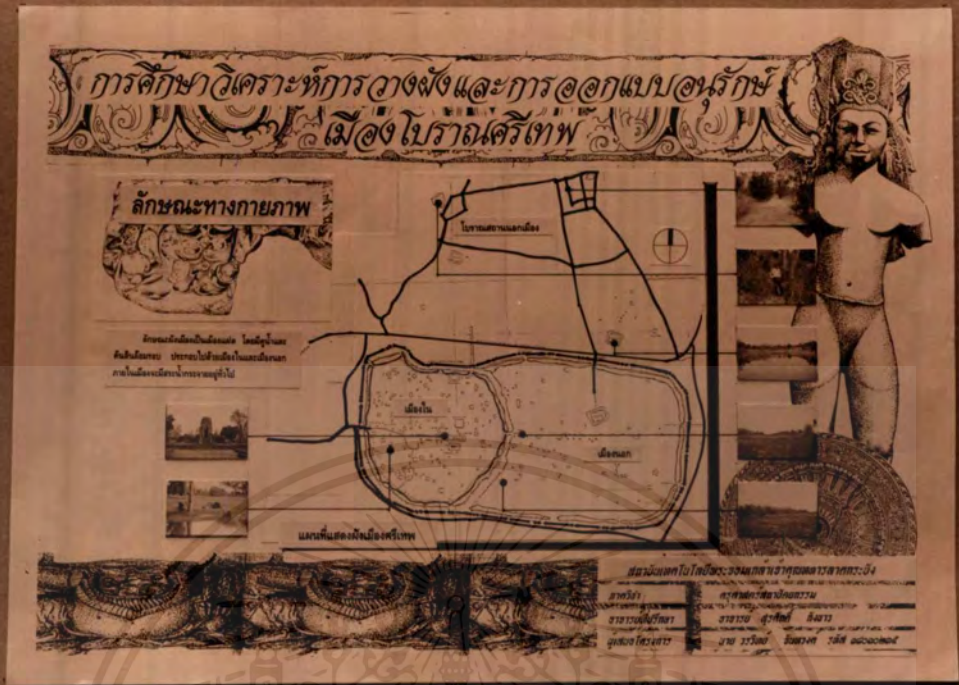 การศึกษาวิเคราะห์การวางผังและการออกแบบอนุรักษ์
เมืองโบราณศรีเทพ
ลักษณะทางกายภาพ
โบราณสถานนอกเมือง
ลักษณะผังเมืองเป็นเมืองแฝด โดยมีคูน้ำและ
คันดินล้อมรอบ ประกอบไปด้วยเมืองในและเมืองนอก
ภายในเมืองจะมีสระน้ำกระจายอยู่ทั่วไป
เมืองใน
เมืองนอก
แผนที่แสดงผังเมืองศรีเทพ
สถาบันเทคโนโลยีพระจอมเกล้าเจ้าคุณทหารลาดกระบัง
ภาควิชา ครุศาสตร์สถาปัตยกรรม
อาจารย์ที่ปรึกษา อาจารย์ สุรศักดิ์
ผู้เสนอโครงการ นาย รหัส